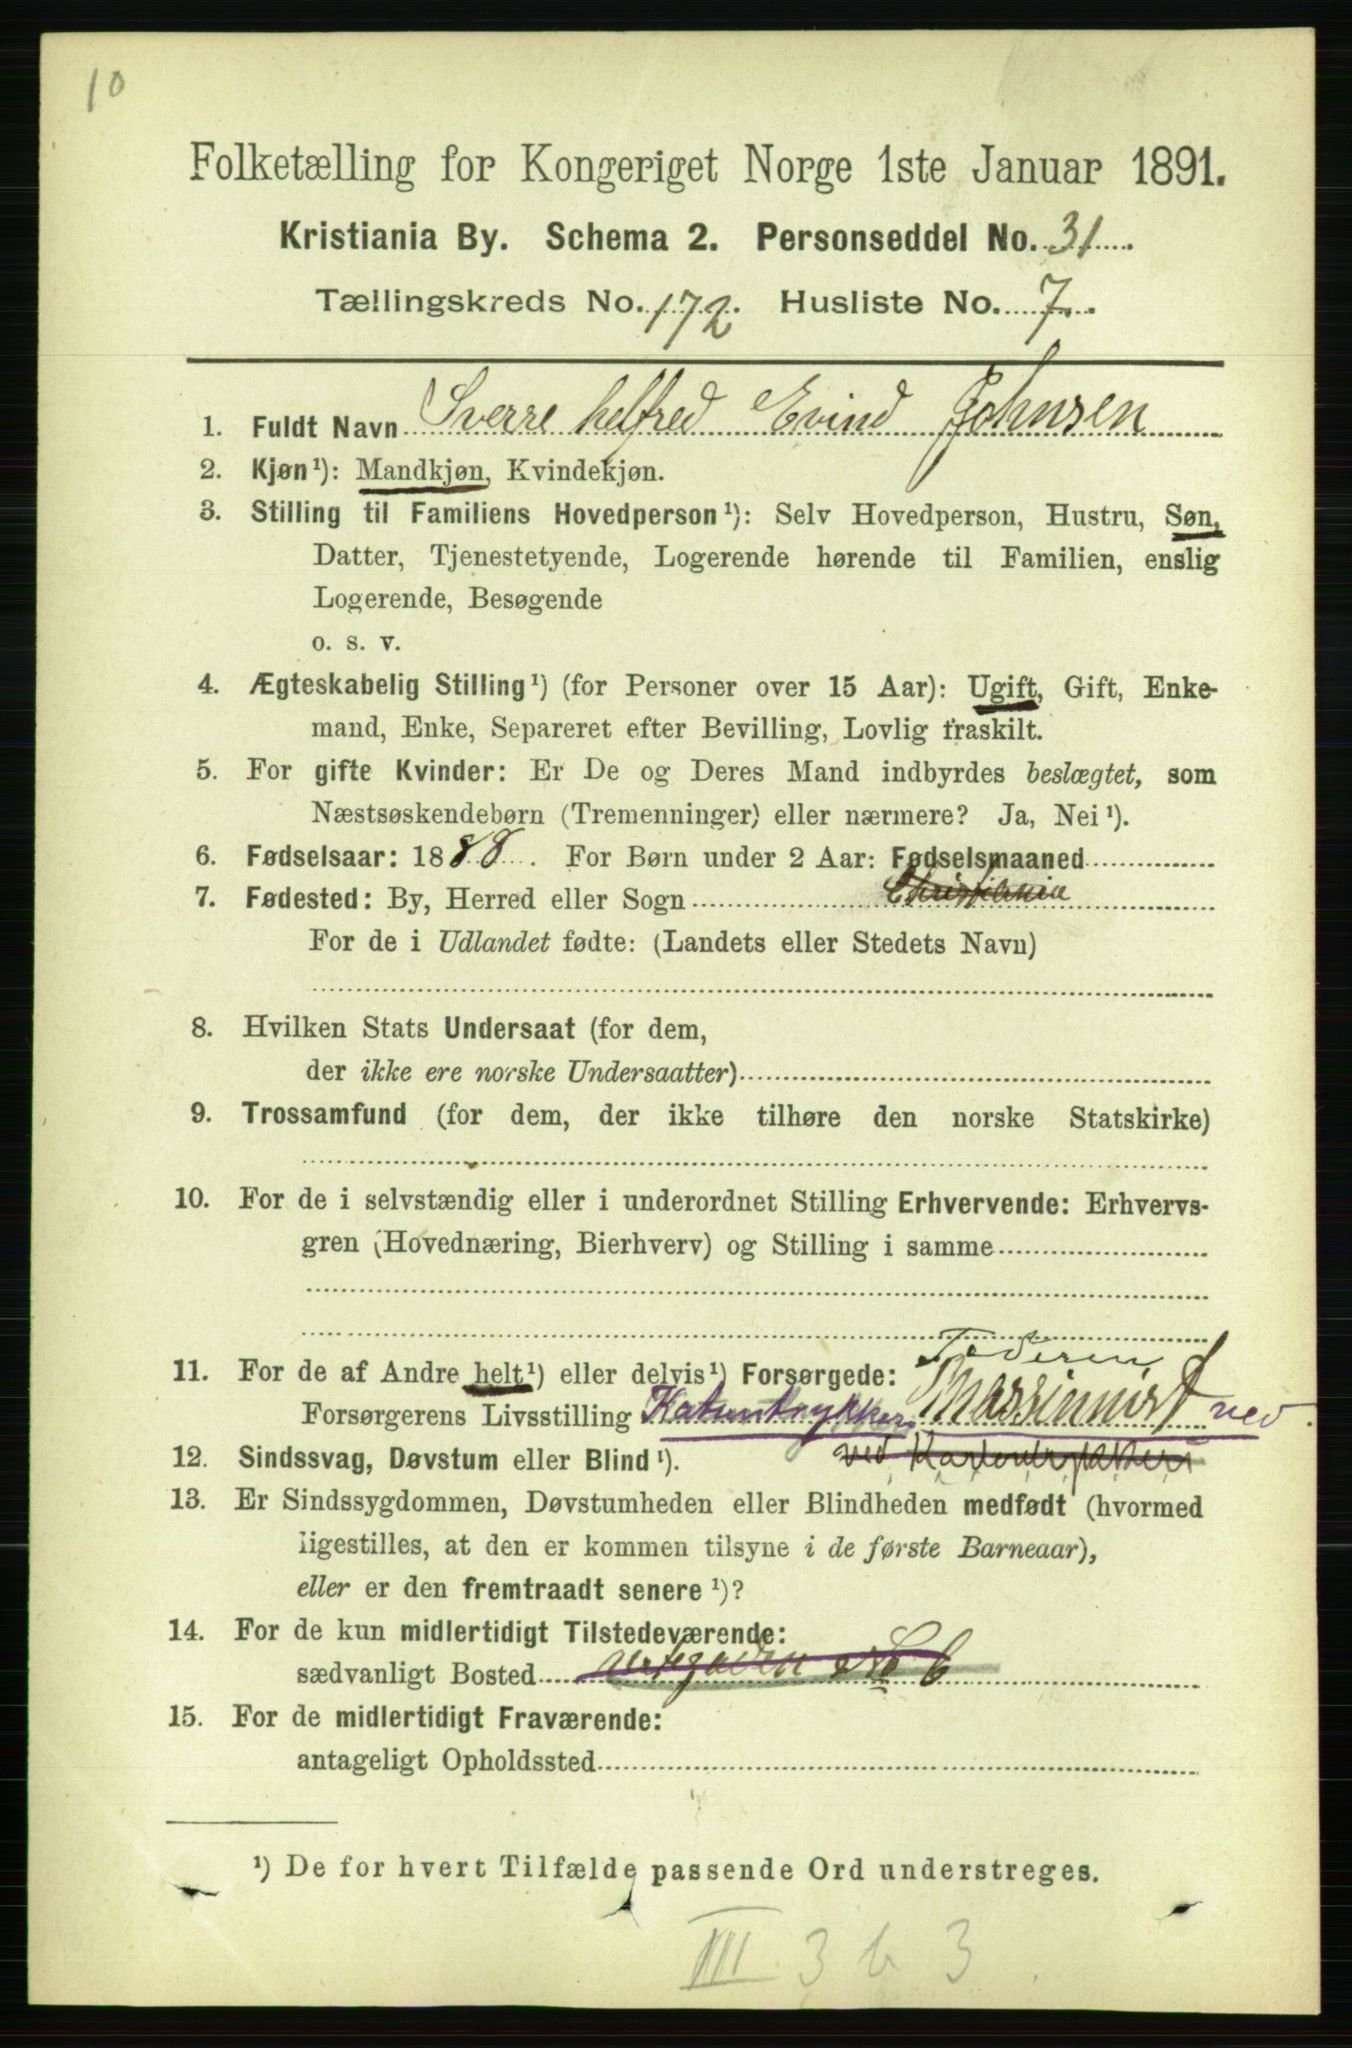 10
Folketælling for Kongeriget Norge 1ste Januar 1891.
Kristiania By. Schema 2. Personseddel No. 31.
Tællingskreds No. 172. Husliste No. 7.
1. Fuldt Navn Sverre helfred Evind Johnsen
2. Kjøn¹): Mandkjøn, Kvindekjøn.
3. Stilling til Familiens Hovedperson¹): Selv Hovedperson, Hustru, Søn,
Datter, Tjenestetyende, Logerende hørende til Familien, enslig
Logerende, Besøgende
o. s. v.
4. Ægteskabelig Stilling¹) (for Personer over 15 Aar): Ugift, Gift, Enke-
mand, Enke, Separeret efter Bevilling, Lovlig fraskilt.
5. For gifte Kvinder: Er De og Deres Mand indbyrdes beslægtet, som
Næstsøskendebørn (Tremenninger) eller nærmere? Ja, Nei¹).
6. Fødselsaar: 1888. For Børn under 2 Aar: Fødselsmaaned
7. Fødested: By, Herred eller Sogn Christiania
For de i Udlandet fødte: (Landets eller Stedets Navn)
8. Hvilken Stats Undersaat (for dem,
der ikke ere norske Undersaatter)
9. Trossamfund (for dem, der ikke tilhøre den norske Statskirke)
10. For de i selvstændig eller i underordnet Stilling Erhvervende: Erhvervs-
gren (Hovednæring, Bierhverv) og Stilling i samme
11. For de af Andre helt¹) eller delvis¹) Forsørgede: Faderen
Forsørgerens Livsstilling Massinnist ved Katuntrykkeri
12. Sindssvag, Døvstum eller Blind¹). ved
13. Er Sindssygdommen, Døvstumheden eller Blindheden medfødt (hvormed
ligestilles, at den er kommen tilsyne i de første Barneaar),
eller er den fremtraadt senere¹)?
14. For de kun midlertidigt Tilstedeværende:
sædvanligt Bosted No 6
15. For de midlertidigt Fraværende:
antageligt Opholdssted
¹) De for hvert Tilfælde passende Ord understreges.
III 3 b 3